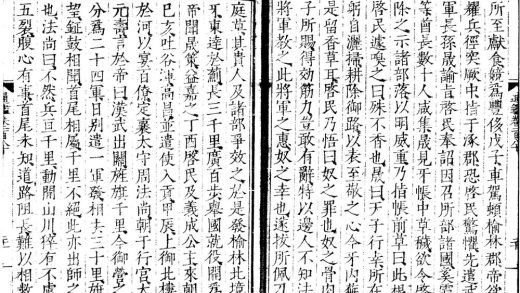 所至獻食競爲豐侈戊子車駕頓榆林郡帝欲
耀兵徑突厥中指于涿郡恐啓民驚懼先遣
軍長孫晟諭旨啓民奉詔因召所部諸國奚霫
等酋長數十人咸集晟見牙帳中草穢欲令啓
除之示諸部落以明威重乃指帳前草曰此根
啓民遽嗅之曰殊不香也晟曰天子行幸所在
躬自灑掃耕除御路以表至敬之心今牙內蕪
是留香草耳啓民乃悟曰奴之罪也奴之骨
子所賜得効筋力豈敢有辭特以邊人不知法
將軍教之此將軍之惠奴之幸也遂拔所佩刀
庭草其貴人及諸部爭效之於是發榆林北境
牙東達於薊長三千里廣百步舉國就役開爲
帝聞晟策益嘉之丁酉啓民及義成公主來朝
己亥吐谷渾高昌並遣使入貢甲辰上御北樓
於河以宴百僚定襄太守周法尚朝于行宮太
元壽言於帝曰漢武出關旌旗千里今御營之
分爲二十四軍日別遣一軍發相去三十里旗
望鉦鼓相聞首尾相屬千里不絕此亦出師之
也法尚曰不然兵亘千里動間山川猝有不虞
五裂腹心有事首尾未知道路阻長難以相救